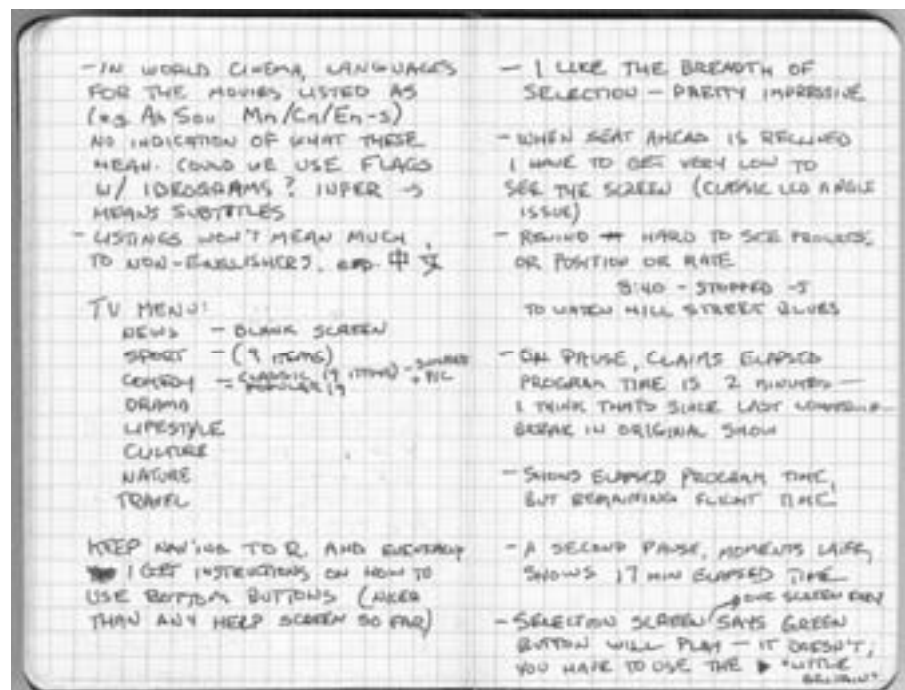 - IN WORLD CINEMA, LANGUAGES
FOR THE MOVIES LISTED AS
(eg Ah Sou Mn/Cn/En-s)
NO INDICATION OF WHAT THESE
MEAN. COULD WE USE FLAGS
W/ IDEOGRAMS? INFER -s
MEANS SUBTITLES
- LISTINGS WON'T MEAN MUCH
TO NON-ENGLISHERS, esp. 中文
TV MENU:
NEWS - BLANK SCREEN
SPORT - (9 ITEMS)
COMEDY - CLASSIC (9 ITEMS) -
= POPULAR 19 + PIC
DRAMA
LIFESTYLE
CULTURE
NATURE
TRAVEL
KEEP NAV'ING TO R, AND EVENTUALLY
I GET INSTRUCTIONS ON HOW TO
USE BOTTOM BUTTONS (NICER
THAN ANY HELP SCREEN SO FAR)
- I LIKE THE BREADTH OF
SELECTION - PRETTY IMPRESSIVE
- WHEN SEAT AHEAD IS RECLINED
I HAVE TO GET VERY LOW TO
SEE THE SCREEN (CLASSIC LCD ANGLE
ISSUE)
- REWIND HARD TO SEE PROGRESS,
OR POSITION OR RATE
8:40 - STOPPED -5
TO WATCH HILL STREET BLUES
- ON PAUSE, CLAIMS ELAPSED
PROGRAM TIME IS 2 MINUTES -
I THINK THATS SINCE LAST
BREAK IN ORIGINAL SHOW
- SHOWS ELAPSED PROGRAM TIME,
BUT REMAINING FLIGHT TIME
- A SECOND PAUSE, MOMENTS LATER,
SHOWS 17 MIN ELAPSED TIME
ONE SCREEN ONLY
- SELECTION SCREEN SAYS GREEN
BUTTON WILL PLAY - IT DOESN'T,
YOU HAVE TO USE THE ▶ "LITTLE
BRITAIN"